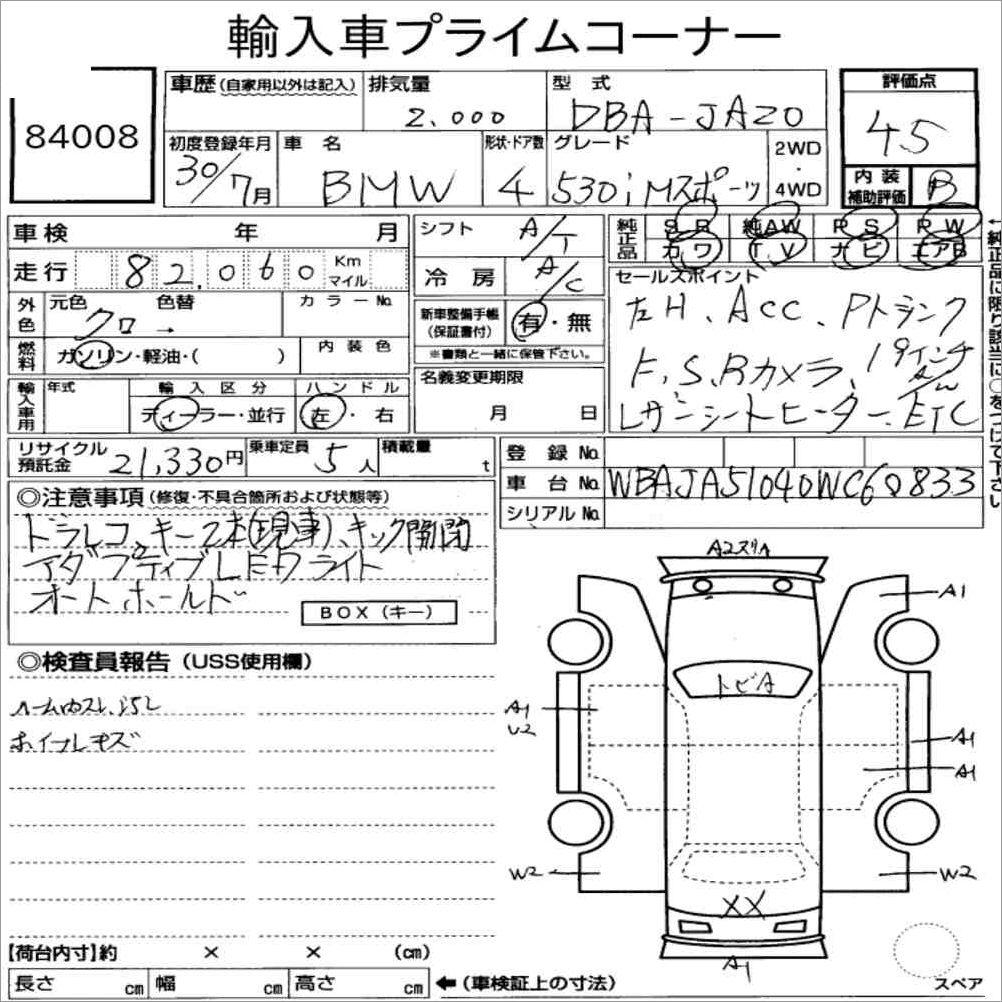 輸入車プライムコーナー
84008
車歴(自家用以外は記入)
排気量
2.000
型 式
DBA-JA20
評価点
45
初度登録年月
30/7月
車 名
BMW
形状・ドア数
4
グレード
530i Mスポーツ
2WD
・
4WD
内 装
補助評価
B
車検 年 月
走行 82,060 Km
マイル
外色
元色 色替
クロ →
カラーNo.
燃料
ガソリン・軽油・( )
内 装 色
輸入車用
年式
輸 入 区 分
ディーラー・並行
ハ ン ド ル
左・右
シフト
A/T
冷 房
A/C
新車整備手帳
(保証書付)
有・無
※書類と一緒に保管下さい。
名義変更期限
月 日
純正品
SR 純AW PS PW
カワ TV ナビ エアB
←純正品に限り該当に○をつけて下さい
セールスポイント
左H、ACC、Pトランク
F,S,Rカメラ、19インチAW
レザーシートヒーター、ETC
リサイクル
預託金
21,330円
乗車定員
5人
積載量
t
登 録 No.
車 台 No.
WBAJA51040WC60833
シリアル No.
◎注意事項(修復・不具合箇所および状態等)
ドラレコ、キー2本(現車)、キック開閉
アダプティブLEDライト
オートホールド
BOX(キー)
◎検査員報告(USS使用欄)
ホイールキズ
A2スリA
A1
トビA
A1
U2
A1
A1
W2
W2
XX
A1
スペア
【荷台内寸】約 × × (cm)
長さ cm 幅 cm 高さ cm ←(車検証上の寸法)